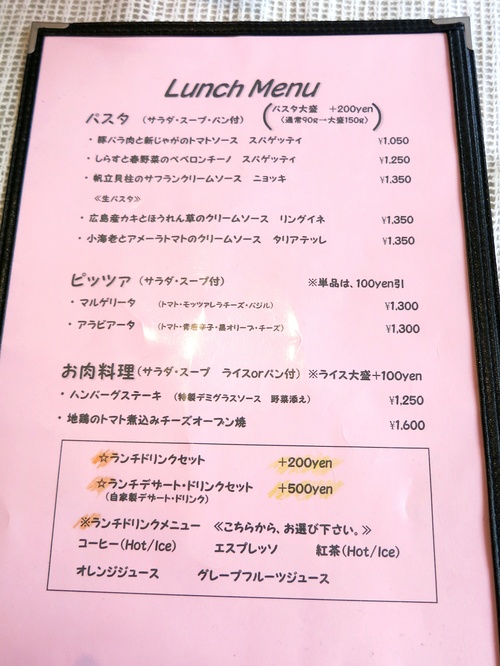 Lunch Menu
パスタ (サラダ・スープ・パン付) (パスタ大盛 +200yen
〈通常90g→大盛150g〉)
・豚バラ肉と新じゃがのトマトソース スパゲッティ ¥1,050
・しらすと春野菜のペペロンチーノ スパゲッティ ¥1,250
・帆立貝柱のサフランクリームソース ニョッキ ¥1,350
≪生パスタ≫
・広島産カキとほうれん草のクリームソース リングイネ ¥1,350
・小海老とアメーラトマトのクリームソース タリアテッレ ¥1,350
ピッツァ (サラダ・スープ付) ※単品は、100yen引
・マルゲリータ (トマト・モッツァレラチーズ・バジル) ¥1,300
・アラビアータ (トマト・青唐辛子・黒オリーブ・チーズ) ¥1,300
お肉料理 (サラダ・スープ ライスorパン付) ※ライス大盛+100yen
・ハンバーグステーキ (特製デミグラスソース 野菜添え) ¥1,250
・地鶏のトマト煮込みチーズオーブン焼 ¥1,600
☆ランチドリンクセット +200yen
☆ランチデザート・ドリンクセット +500yen
(自家製デザート・ドリンク)
※ランチドリンクメニュー ≪こちらから、お選び下さい。≫
コーヒー(Hot/Ice) エスプレッソ 紅茶(Hot/Ice)
オレンジジュース グレープフルーツジュース